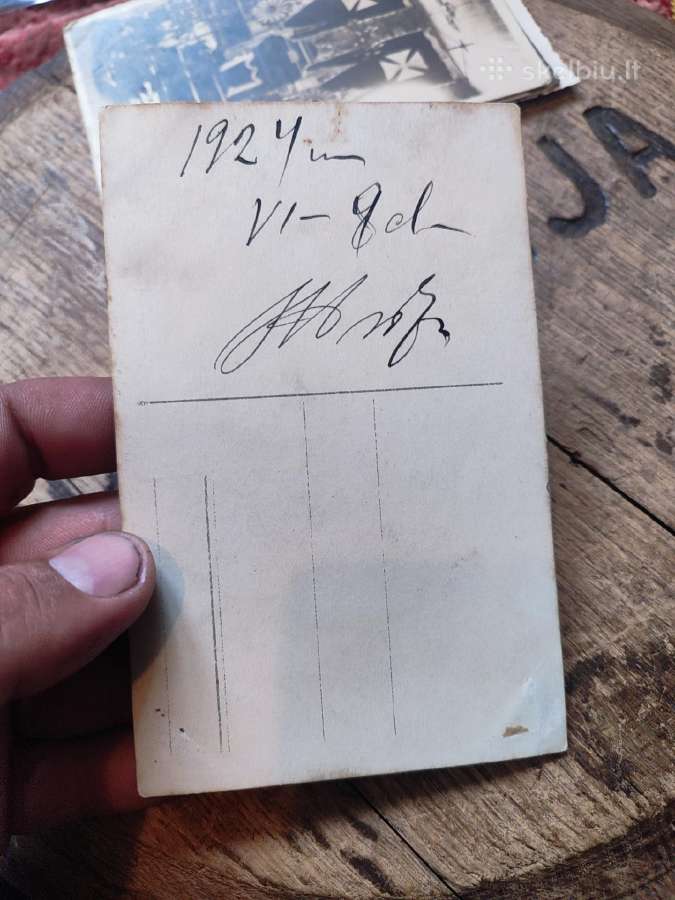 skelbiu.lt
JA
1924 m
VI – 8 d.